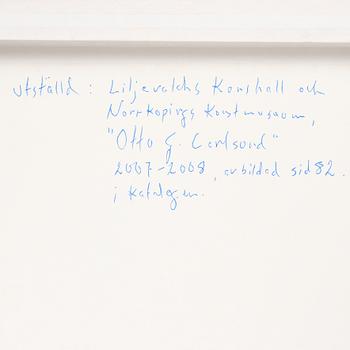 utställd : Liljevalchs Konsthall och
Norrköpings Konstmuseum,
"Otto G. Carlsund"
2007-2008, avbildad sid 82.
i katalogen.